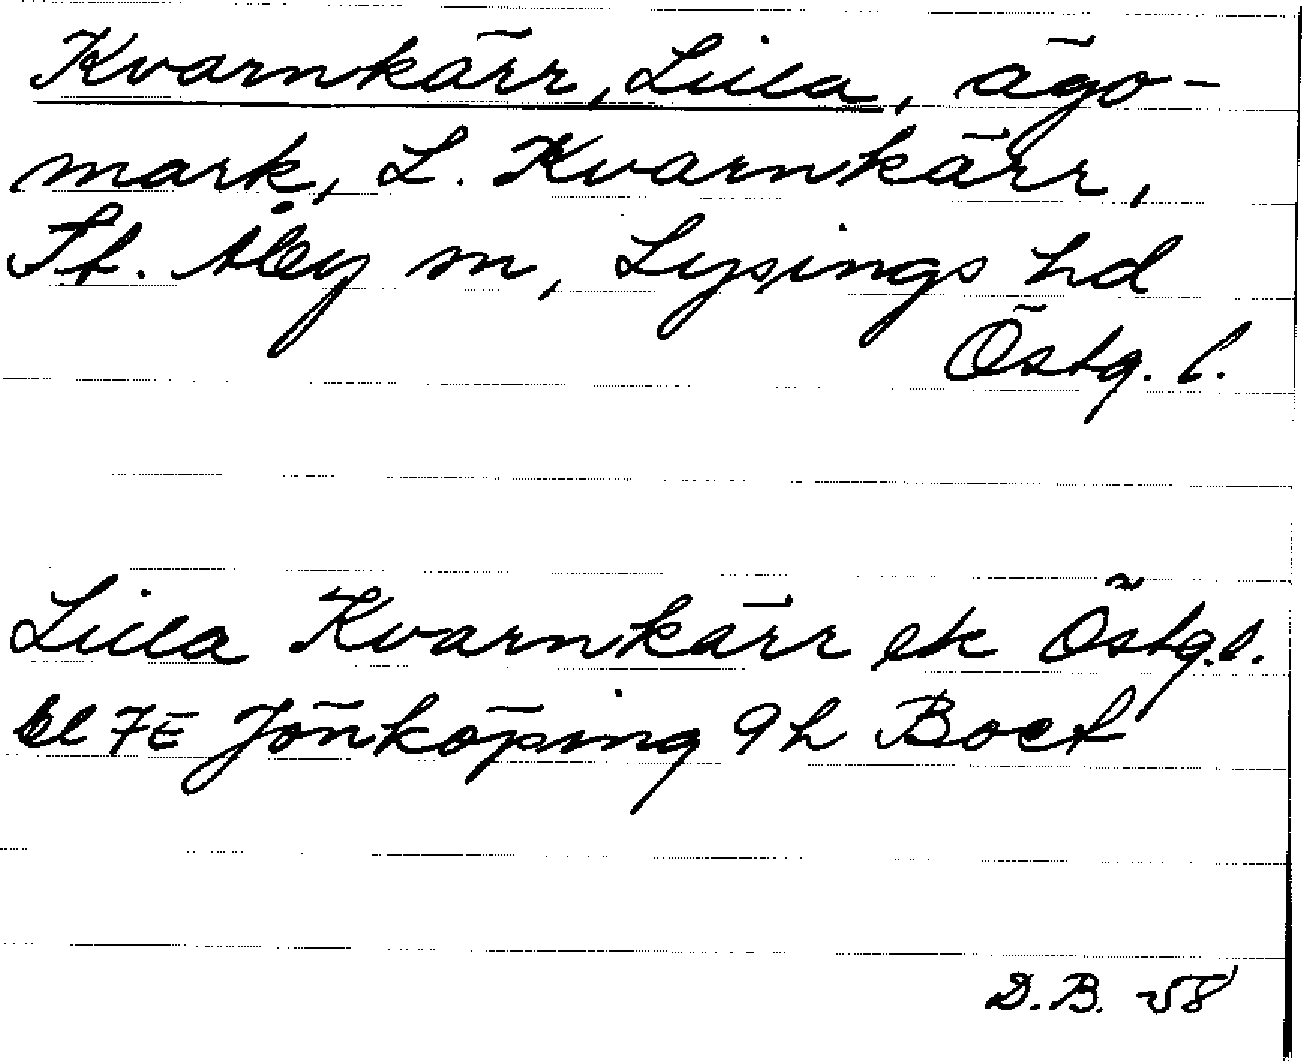 Kvarnkärr, Lilla, ägo-
mark, L. Kvarnkärr,
St. Åby sn, Lysings hd
Östg. l.
Lilla Kvarnkärr ek Östg.l.
bl 7E Jönköping 9h Boet
D.B. -58